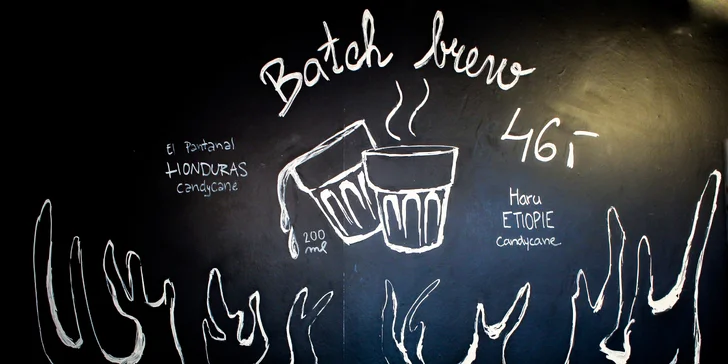 Batch brew
46,-
El Pantanal
HONDURAS
candycane
Haru
ETIOPIE
candycane
200
ml